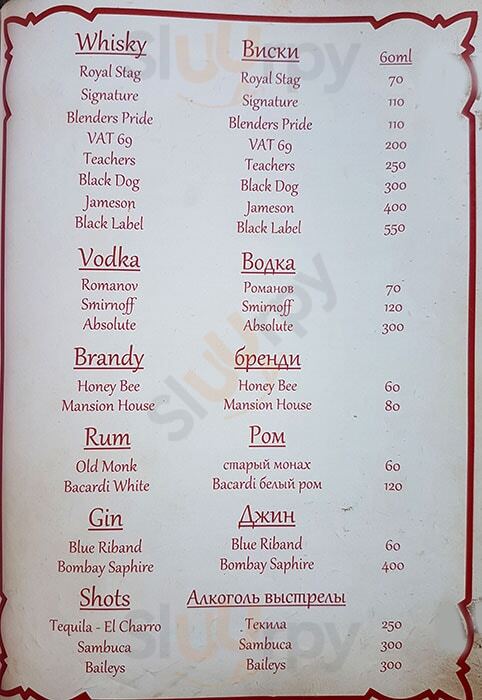 Whisky Виски 60ml
Royal Stag Royal Stag 70
Signature Signature 110
Blenders Pride Blenders Pride 110
VAT 69 VAT 69 200
Teachers Teachers 250
Black Dog Black Dog 300
Jameson Jameson 400
Black Label Black Label 550
Vodka Водка
Romanov Романов 70
Smirnoff Smirnoff 120
Absolute Absolute 300
Brandy бренди
Honey Bee Honey Bee 60
Mansion House Mansion House 80
Rum Ром
Old Monk старый монах 60
Bacardi White Bacardi белый ром 120
Gin Джин
Blue Riband Blue Riband 60
Bombay Saphire Bombay Saphire 400
Shots Алкоголь выстрелы
Tequila - El Charro Текила 250
Sambuca Sambuca 300
Baileys Baileys 300
sluurpy
sluurpy
sluurpy